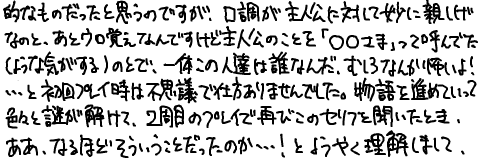 的なものだったと思うのですが、口調が主人公に対して妙に親しげ
なのと、あとウロ覚えなんですけど主人公のことを「○○さま」って呼んでた
(ような気がする)のとで、一体この人達は誰なんだ、むしろなんか怖いよ!
…と初回プレイ時は不思議で仕方ありませんでした。物語を進めていって
色々と謎が解けて、2周目のプレイで再びこのセリフを聞いたとき、
ああ、なるほどそういうことだったのか…!とようやく理解しまして、